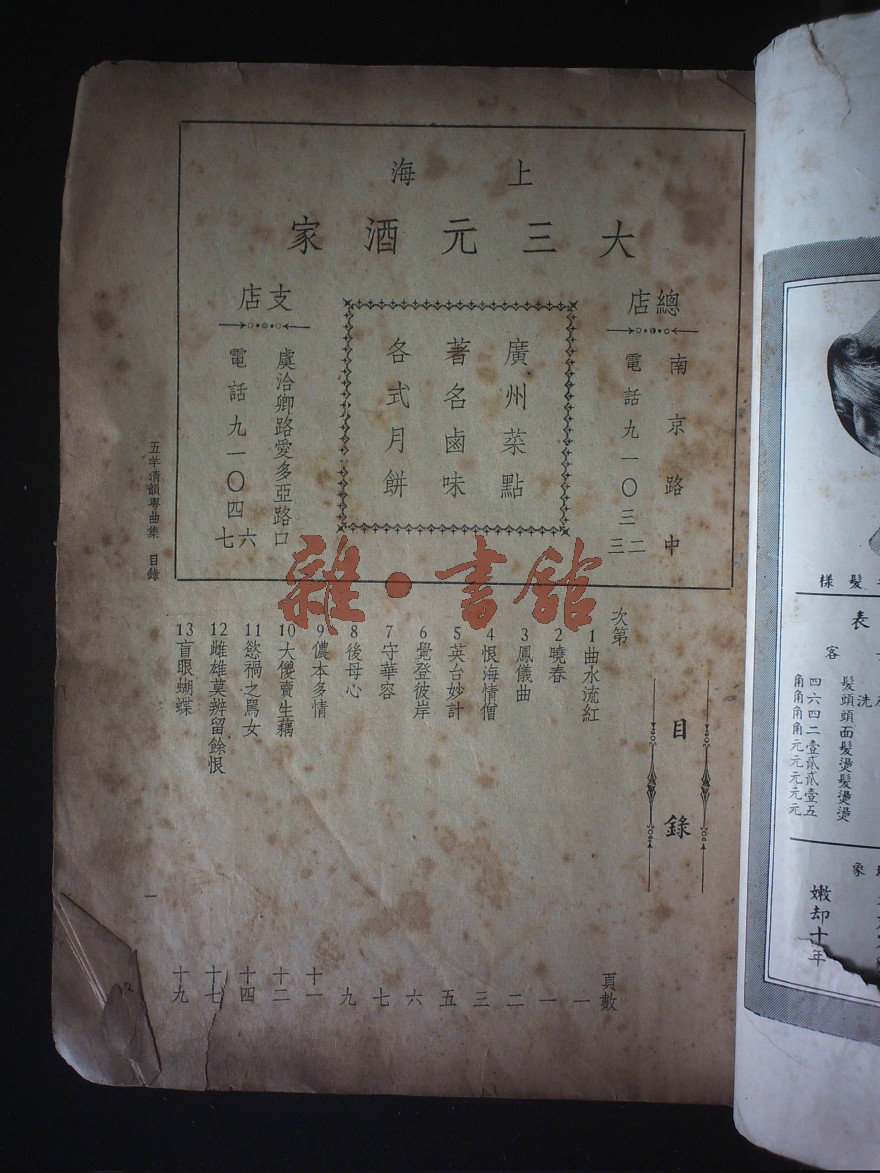 上海
大三元酒家
總店
南京路中
電話九一〇三二三
廣州菜點
著名鹵味
各式月餅
支店
虞洽卿路愛多亞路口
電話九一〇四六七
目錄
次第 頁數
1曲水流紅 一
2曉春 一
3鳳儀曲 二
4恨海情僧 三
5英台妙計 五
6覺登彼岸 六
7守華容 七
8後母心 九
9儂本多情 十一
10大傻賣生藕 十二
11慾禍之駡女 十四
12雌雄莫辨留餘恨 十七
13盲眼蝴蝶 十九
五羊清韻粤曲集 目錄
一
雜·書館
髮樣
表
客
洗
髮頭頭面髮燙髮燙燙
四六四二壹貳貳壹五
角角角角元元元元元
象
嫩却十年